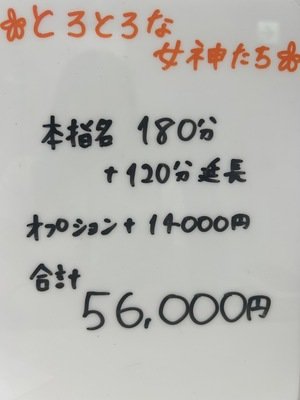 ❀とろとろな
女神たち❀
本指名 180分
+120分延長
オプション+14000円
合計
56,000円